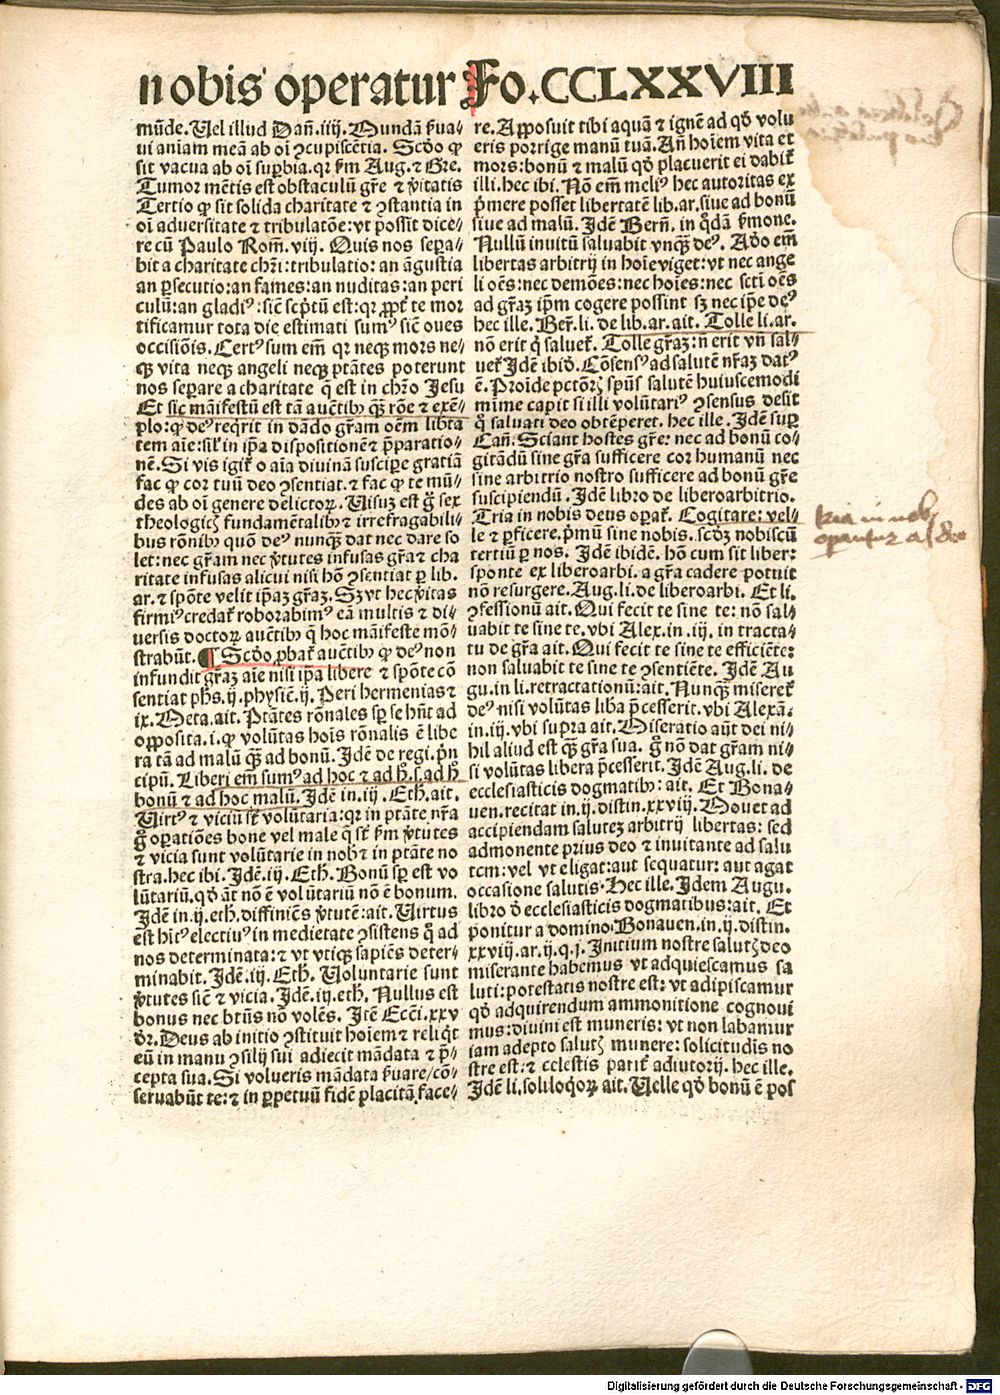 nobis operatur Fo.CCLXXVIII
mūde. Uel illud Dañ.iiij. Mundā ẜua⸗
ui aniam meā ab oī ꝯcupiscētia. Scḋo ꝙ
sit vacua ab oī suꝑbia. qr ẜm Aug. ⁊ Gre.
Tumor mētis est obstaculū gr̄e ⁊ v̓itatis
Tertio ꝙ sit solida charitate ⁊ ꝯstantia in
oī aduersitate ⁊ tribulatōe: vt possit dice⸗
re cū Paulo Rom̄. viij. Quis nos sepa⸗
bit a charitate chr̄i: tribulatio: an āgustia
an ꝑsecutio: an fames: an nuditas: an peri
culū: an gladiꝰ: sic̄ scp̄tū est: qr ꝓpt̓ te mor
tificamur tota die estimati sumꝰ sic̄ oues
occisiōis. Certꝰ sum em̄ qr neqꝫ mors ne⸗
qꝫ vita neqꝫ angeli neqꝫ ptātes poterunt
nos separe a charitate q̄ est in chr̄o Jesu
Et sic māifestū est tā auc̄tibꝰ qꝫ̄ rōe ⁊ exē⸗
plo: ꝙ deꝰ reqrit in dādo gr̄am oēm libtā
tem aīe: sil̓ in ip̄a dispositione ⁊ p̄paratio⸗
nē. Si vis igit̓ o aīa diuinā suscipe gratiā
fac ꝙ cor tuū deo ꝯsentiat ⁊ fac ꝙ te mū⸗
des ab oī genere delictoꝝ. Uisuꝫ est g̊ sex
theologicꝭ fundamētalibꝰ ⁊ irrefragabili⸗
bus rōnibꝰ quō deꝰ nunqꝫ̄ dat nec dare so
let: nec gr̄am nec v̓tutes infusas gr̄a ⁊ cha
ritate infusas alicui nisi hō ꝯsentiat ꝑ lib.
ar. ⁊ spōte velit ip̄aꝫ gr̄aꝫ. Sꝫ vt hec v̓itas
firmiꝰ credat̓ roborabimꝰ eā multis ⁊ di⸗
uersis doctoꝝ auc̄tibꝰ q̄ hoc māifeste mō⸗
strabūt. ¶ Scḋo ꝓbat̓ auc̄tibꝰ ꝙ deꝰ non
infundit gr̄aꝫ aīe nisi ip̄a libere ⁊ spōte cō
sentiat ph̄s.ij.physic̄.ij. Peri hermenias ⁊
ix. Meta. ait. Ptātes rōnales sꝑ se hn̄t ad
opposita .i. ꝙ volūtas hoīs rōnalis ē libe
ra tā ad malū qꝫ̄ ad bonū. Jdē de regi. p̄n
cipū. Liberi em̄ sumꝰ ad hoc ⁊ ad h̊.s.ad h̊
bonū ⁊ ad hoc malū. Jdē in.iij. Eth. ait.
Uirtꝰ ⁊ viciū sūt volūtaria: qr in ptāte nr̄a
g̊ oꝑatiōes bone vel male q̄ sūt ẜm v̓tutes
⁊ vicia sunt volūtarie in nob̓ ⁊ in ptāte no
stra. hec ibi. Jdē.iij. Eth. Bonū sꝑ est vo
lūtariū. qḋ āt nō ē volūtariū nō ē bonum.
Jdē in.ij. eth. diffiniēs v̓tutē: ait. Uirtus
est hītꝰ electiuꝰ in medietate ꝯsistens q̄ ad
nos determinata: ⁊ vt vtiqꝫ sapiēs deter⸗
minabit. Jdē.iij. Eth. Uoluntarie sunt
v̓tutes sic̄ ⁊ vicia. Jdē.iij.eth. Nullus est
bonus nec btūs nō volēs. Jtē Ecc̄i.xxv
ḋr. Deus ab initio ꝯstituit hoīem ⁊ reliq̓t
eū in manu ꝯsilij sui adiecit mādata ⁊ p̄⸗
cepta sua. Si volueris mādata ẜuare / cō⸗
seruabūt te: ⁊ in ꝑpetuū fidē placitā face⸗
re. Apposuit tibi aquā ⁊ ignē ad qḋ volu
eris porrige manū tuā. Añ hoīem vita et
mors: bonū ⁊ malū qḋ placuerit ei dabit̓
illi. hec ibi. Nō em̄ meliꝰ hec autoritas ex
p̄mere posset libertatē lib. ar. siue ad bonū
siue ad malū. Jdē Berñ. in q̄dā ẜmone.
Nullū inuitū saluabit vnqꝫ̄ deꝰ. Aḋo em̄
libertas arbitrij in hoīe viget: vt nec ange
li oēs: nec demōes: nec hoīes: nec sctī oēs
ad gr̄aꝫ ip̄m cogere possint sꝫ nec ip̄e deꝰ
hec ille. Ber̄. li. de lib. ar. ait. Tolle li. ar.
nō erit q̓ saluet̓. Tolle gr̄aꝫ: ñ erit vñ sal⸗
uet̓ Jdē ibiḋ. Cōsensꝰ ad salutē nr̄aꝫ datꝰ
ē. Proide pctōrꝭ spūs salutē huiuscemodi
mīme capit si illi volūtariꝰ ꝯsensus desit
q̄ saluati deo obtēperet. hec ille. Jdē suꝑ
Cañ. Sciant hostes gr̄e: nec ad bonū co⸗
gitādū sine gr̄a sufficere cor humanū nec
sine arbitrio nostro sufficere ad bonū gr̄e
suscipiendū. Jdē libro de liberoarbitrio.
Tria in nobis deus opat̓. Cogitare: vel⸗
le ⁊ ꝑficere. p̄mū sine nobis. scḋꝫ nobiscū
tertiū ꝑ nos. Jdē ibidē. hō cum sit liber:
sponte ex liberoarbi. a gr̄a cadere potuit
non resurgere. Aug. li. de liberoarbi. Et li.
ꝯfessionū ait. Qui fecit te sine te: nō sal⸗
uabit te sine te. vbi Alex. in .iij. in tracta⸗
tu de gr̄a ait. Qui fecit te sine te efficiēte:
non saluabit te sine te ꝯsentiēte. Jdē Au
gu. in li. retractationū: ait. Nunqꝫ̄ miseret̓
deꝰ nisi volūtas liba p̄cesserit. vbi Alexā⸗
in.iij. vbi supra ait. Miseratio aūt dei ni⸗
hil aliud est qꝫ̄ gr̄a sua. g̊ nō dat gr̄am ni⸗
si volūtas libera p̄cesserit. Jdē Aug. li. de
ecclesiasticis dogmatibꝰ: ait. Et Bona⸗
uen. recitat in.ij. distin. xxviij. Mouet ad
accipiendam saluteꝫ arbitrij libertas: sed
admonente prius deo ⁊ inuitante ad salu
tem: vel vt eligat: aut sequatur: aut agat
occasione salutis. Hec ille. Jdem Augu.
libro ḋ ecclesiasticis dogmatibus: ait. Et
ponitur a domino Bonauen. in.ij. distin.
xxviij. ar. ij. q. j. Jnitium nostre salutꝭ deo
miserante habemus vt adquiescamus sa
luti: potestatis nostre est: vt adipiscamur
qḋ adquirendum ammonitione cognoui
mus: diuini est muneris: vt non labamur
iam adepto salutꝭ munere: solicitudis no
stre est: ⁊ celestis patir̄ adiutorij. hec ille.
Jdē li. soliloqoꝝ ait. Uelle qḋ bonū ē pos
tria in nob
operatur
Digitalisierung gefördert durch die Deutsche Forschungsgemeinschaft - DFG